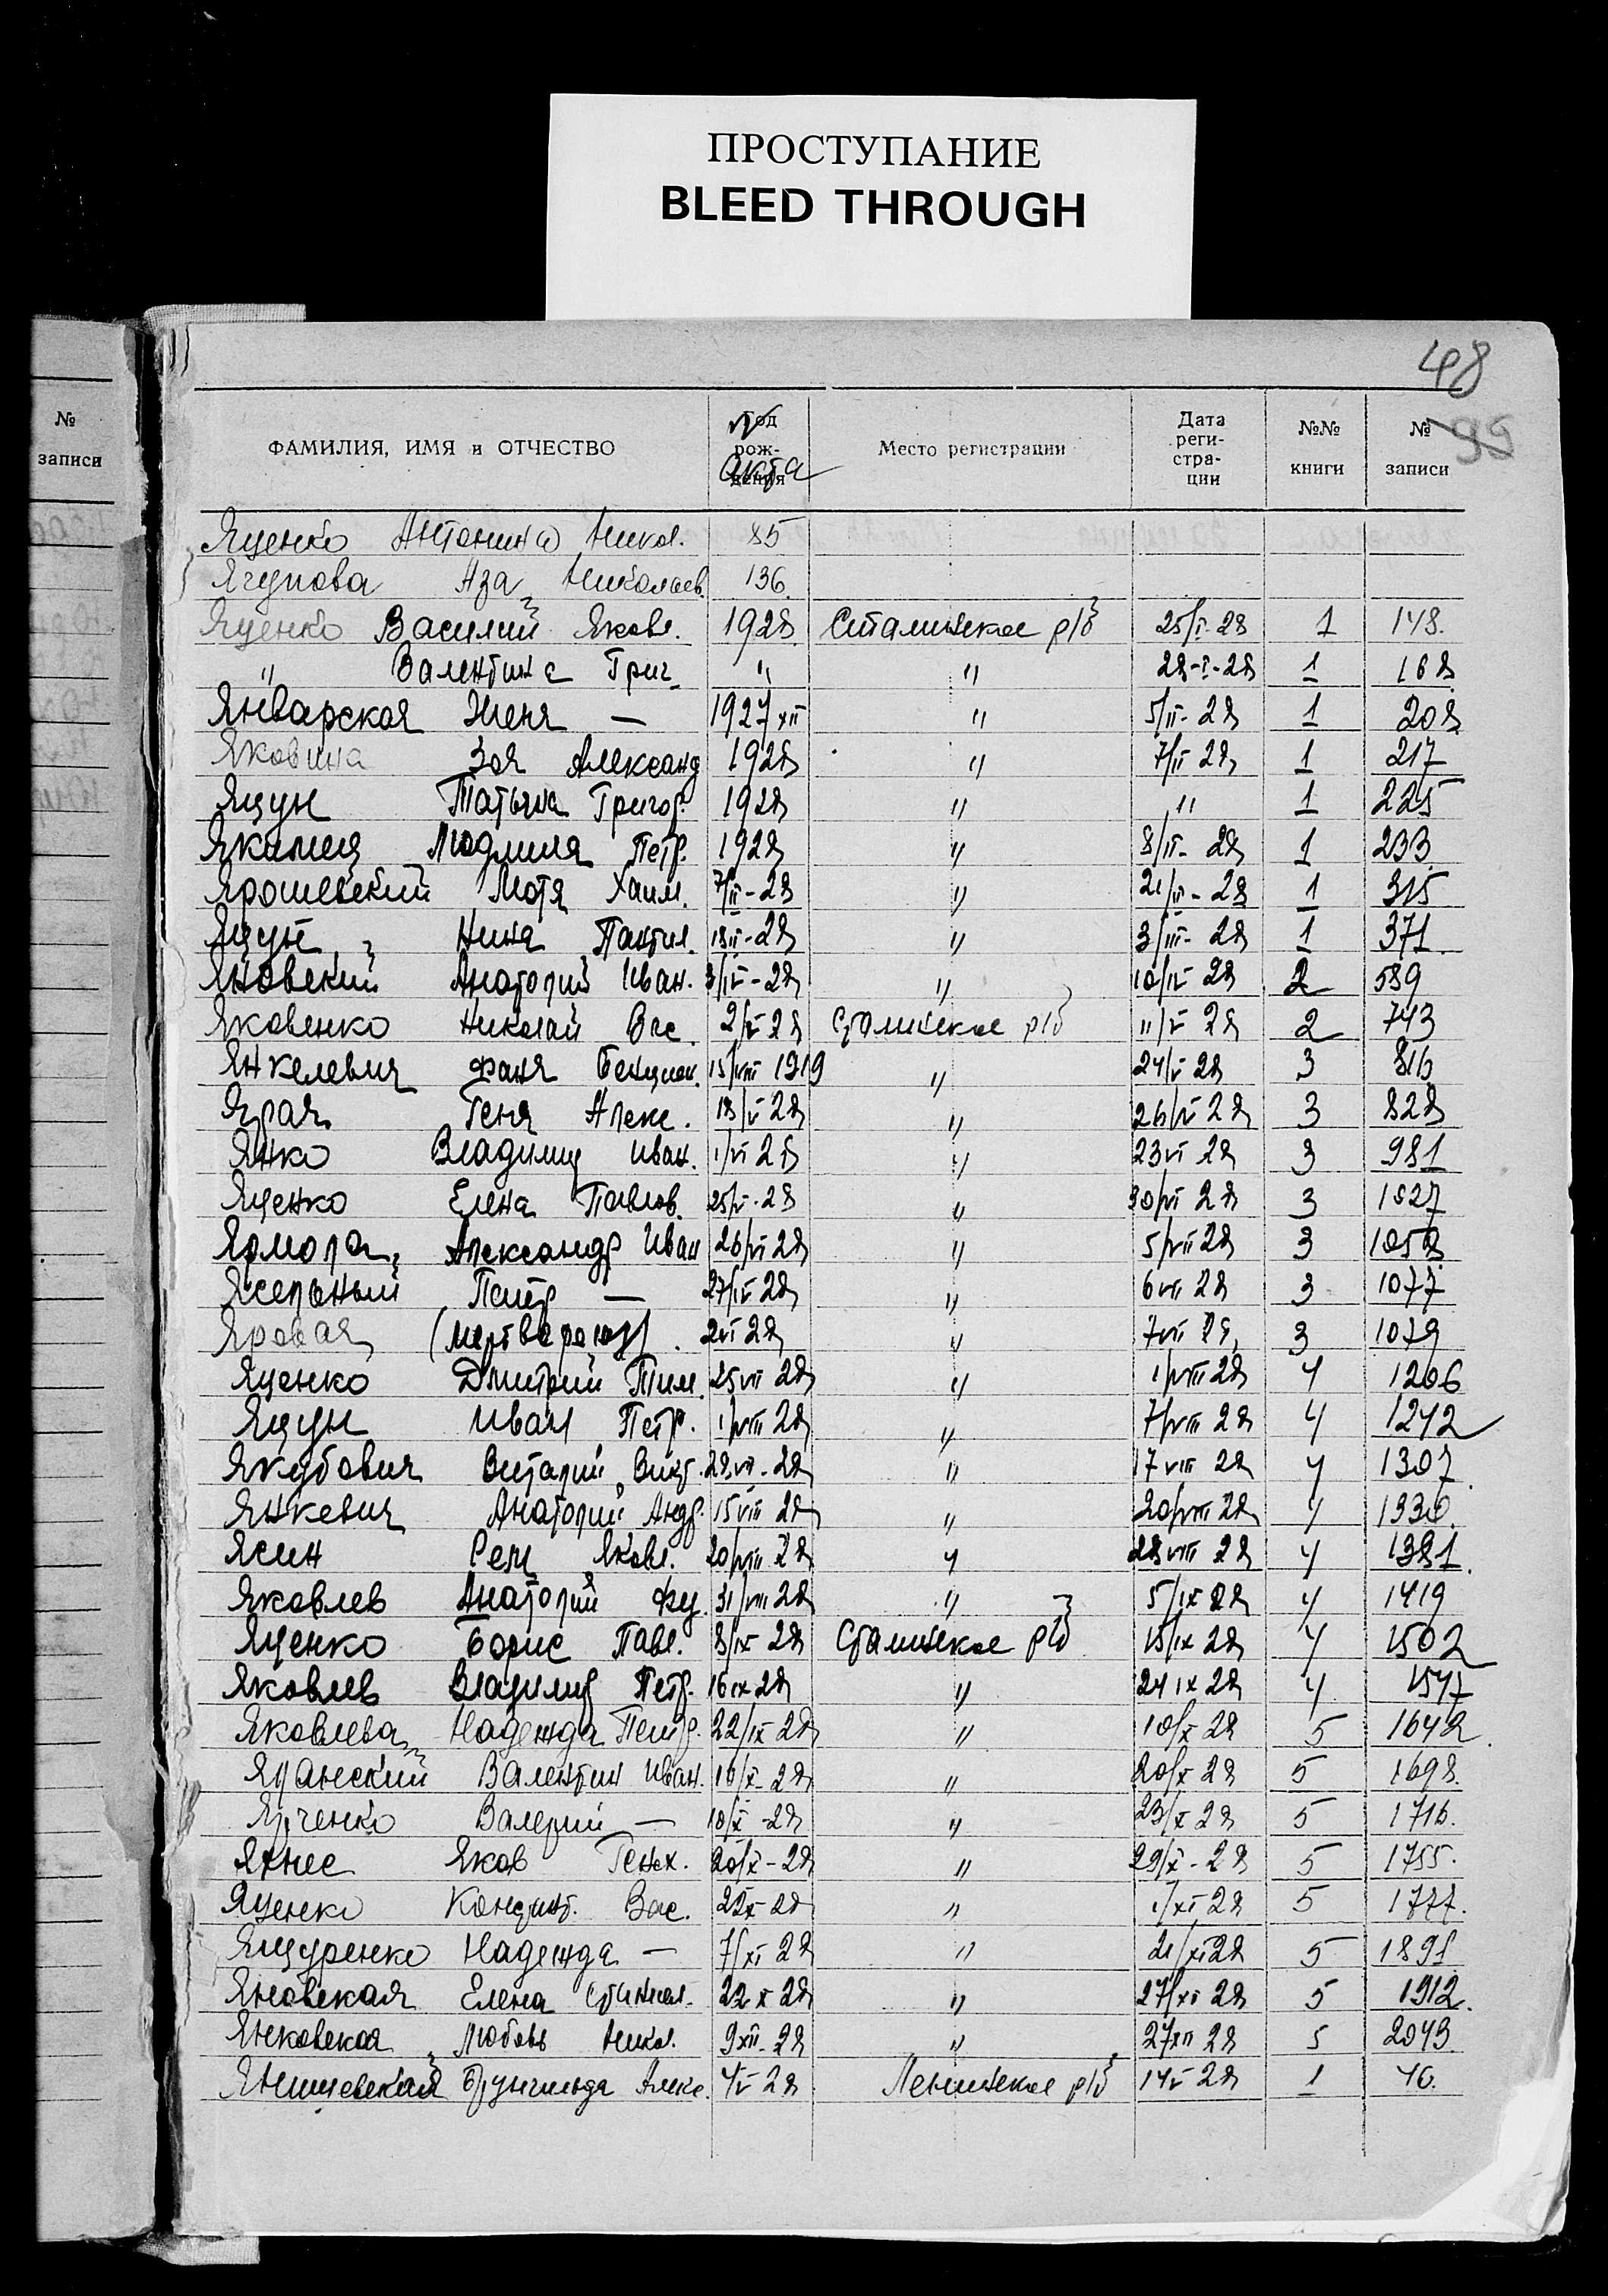 ПРОСТУПАНИЕ
BLEED THROUGH
48
99
№ записи
ФАМИЛИЯ, ИМЯ и ОТЧЕСТВО Год рождения № акта Место регистрации Дата регистрации №№ книги № записи
Яценко Антонина Никол. 85
Ягупова Аза Николаев. 136
Яценко Василий Яковл. 1928 Сталинское р/б 25/I-28 1 148.
" Валентина Григ. " " 28-I-28 1 168
Январская Женя — 1927 XII " 5/II-28 1 208
Яковина Зоя Александ 1928 " 7/II 28 1 217
Яцун Татьяна Григор. 1928 " " 1 225
Якимец Людмила Петр. 1928 " 8/II-28 1 233
Ярошевский Мотя Хаим. 7/II-28 " 21/II-28 1 315
Яцун Нина Пантил. 18II-28 " 3/III-28 1 371
Яновский Анатолий Иван. 3/IV-28 " 10/IV 28 2 589
Яковенко Николай Вас. 2/V 28 Сталинское р/б 11/V 28 2 743
Янкелевич Фаня 15/VIII 1919 " 24/V 28 3 816
Ярая Геня Алекс. 18/V 28 " 26/V 28 3 828
Янко Владимир Иван. 1/VI 28 " 23VI 28 3 981
Яценко Елена Павлов. 25/V-28 " 30/VI 28 3 1027
Ярмола Александр Иван 26/VI 28 " 5/VII 28 3 1058
Ясельный Петр — 27/IV 28 " 6VII 28 3 1077
Яровая (мертворожд) 2VI 28 " 7VII 28 3 1079
Яценко Дмитрий Тим. 25VII 28 " 1/VIII 28 4 1206
Яцун Иван Петр. 1/VIII 28 " 7/VIII 28 4 1242
Якубович Виталий Викт. 28VII-28 " 17VIII 28 4 1307
Янкевич Анатолий Андр. 15VIII 28 " 20/VIII 28 4 1330
Ясин Яковл. 20/VIII 28 " 28VIII 28 4 1381
Яковлев Анатолий 31/VIII 28 " 5/IX 28 4 1419
Яценко Борис Павл. 8/IX 28 Сталинское р/б 15/IX 28 4 1502
Яковлев Владимир Петр. 16IX 28 " 24 IX 28 4 1547
Яковлева Надежда Петр. 22/IX 28 " 10/X 28 5 1642
Валентин Иван. 16/X-28 " 20/X 28 5 1698.
Валерий — 18/X-28 " 23/X 28 5 1716.
Яхнес Яков Генех. 20/X-28 " 29/X-28 5 1755.
Яценко Констинт. Вас. 22X 28 " 1/XI 28 5 1777.
Ящуренко Надежда — 7/XI 28 " 21/XI 28 5 1891
Яновская Елена 22X 28 " 27/XI 28 5 1912.
Янковская Любовь Никол. 9XII-28 " 27XII 28 5 2043
Янишевская Брунгильда Алекс. 4V 28 Ленинское р/б 14V 28 1 46.